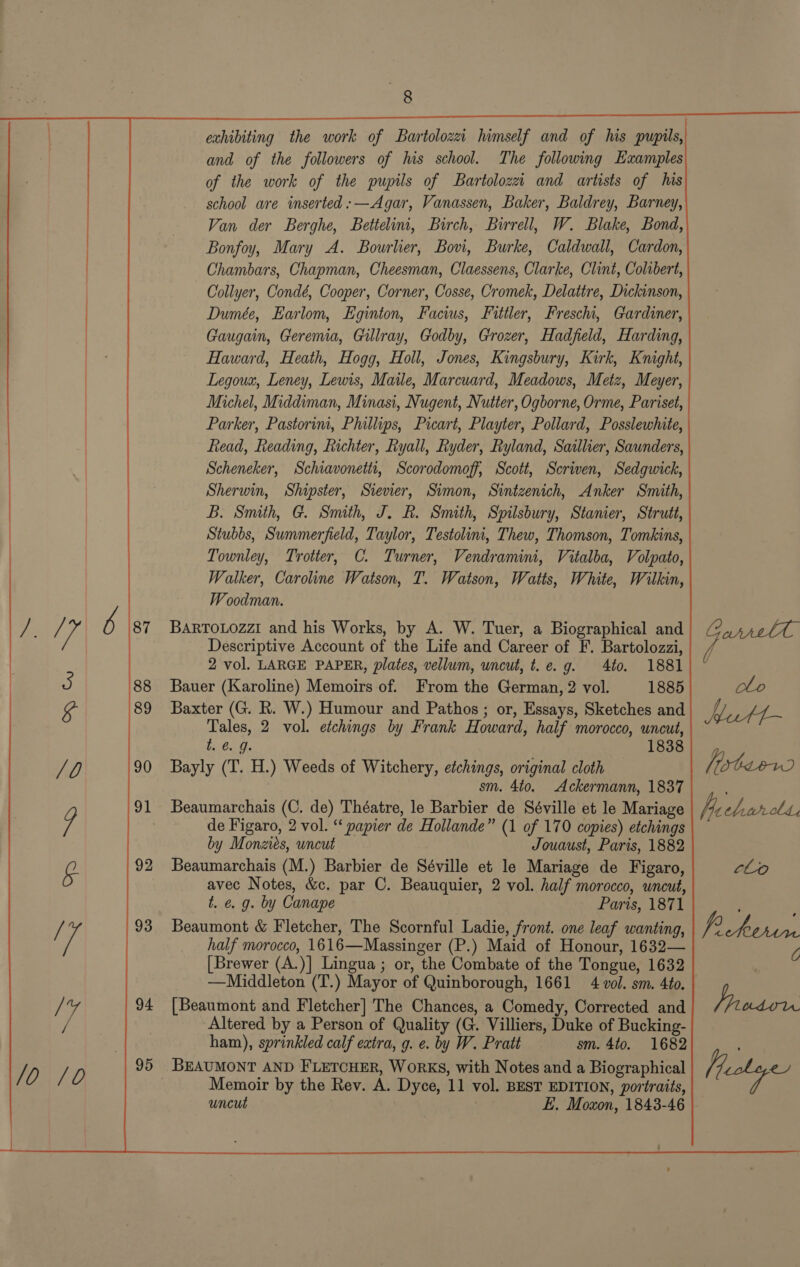 8
exhibiting the work of Bartolozzi himself and of his pupils,
and of the followers of his school. The following Examples
of the work of the pupils of Bartolozzi and artists of his
school are inserted:—Agar, Vanassen, Baker, Baldrey, Barney,
Van der Berghe, Bettelini, Birch, Birrell, W. Blake, Bond,
Bonfoy, Mary A. Bourlier, Bovi, Burke, Caldwall, Cardon,
Chambars, Chapman, Cheesman, Claessens, Clarke, Clint, Colibert,
Collyer, Condé, Cooper, Corner, Cosse, Cromek, Delattre, Dickinson,
Dumée, Earlom, Eginton, Facius, Fittler, Freschi, Gardiner,
Gaugain, Geremia, Gillray, Godby, Grozer, Hadfield, Harding,
Haward, Heath, Hogg, Holl, Jones, Kingsbury, Kirk, Knight,
Legoux, Leney, Lewis, Maile, Marcuard, Meadows, Metz, Meyer,
Michel, Middiman, Minasi, Nugent, Nutter, Ogborne, Orme, Pariset,
Parker, Pastorini, Phillips, Picart, Playter, Pollard, Posslewhite,
Read, Reading, Richter, Ryall, Ryder, Ryland, Saillier, Saunders,
Scheneker, Schiavonetti, Scorodomoff, Scott, Scriven, Sedgwick,
Sherwin, Shipster, Sievier, Simon, Sintzenich, Anker Smith,
B. Smith, G. Smith, J. R. Smith, Spilsbury, Stanier, Strutt,
Stubbs, Summerfield, Taylor, Testolini, Thew, Thomson, Tomkins,
Townley, Trotter, C. Turner, Vendramini, Vitalba, Volpato,
Walker, Caroline Watson, T. Watson, Watts, White, Wilkin,
Woodman.
1. 17 6 87 BARTOLOZZI and his Works, by A. W. Tuer, a Biographical and Garrett
Descriptive Account of the Life and Career of F. Bartolozzi,
2 vol. LARGE PAPER, plates, vellum, uncut, t. e. g. 4to. 1881
3 88 Bauer (Karoline) Memoirs of. From the German, 2 vol. 1885 do
8 89 Baxter (G. R. W.) Humour and Pathos; or, Essays, Sketches and Nutt
Tales, 2 vol. etchings by Frank Howard, half morocco, uncut,
t. e. g. 1838
10 90 Bayly (T. H.) Weeds of Witchery, etchings, original cloth Robson
sm. 4to. Ackermann, 1837
9 91 Beaumarchais (C. de) Théatre, le Barbier de Séville et le Mariage Richards
de Figaro, 2 vol. “papier de Hollande” (1 of 170 copies) etchings
by Monziès, uncut Jouaust, Paris, 1882
8 92 Beaumarchais (M.) Barbier de Séville et le Mariage de Figaro, do
avec Notes, &c. par C. Beauquier, 2 vol. half morocco, uncut,
t. e. g. by Canape Paris, 1871
17 93 Beaumont & Fletcher, The Scornful Ladie, front. one leaf wanting, Pickering
half morocco, 1616—Massinger (P.) Maid of Honour, 1632—
[Brewer (A.)] Lingua; or, the Combate of the Tongue, 1632
—Middleton (T.) Mayor of Quinborough, 1661 4 vol. sm. 4to.
17 94 [Beaumont and Fletcher] The Chances, a Comedy, Corrected and
Altered by a Person of Quality (G. Villiers, Duke of Bucking-
ham), sprinkled calf extra, g. e. by W. Pratt sm. 4to. 1682
10 10 95 BEAUMONT AND FLETCHER, WORKS, with Notes and a Biographical
Memoir by the Rev. A. Dyce, 11 vol. BEST EDITION, portraits,
uncut E. Moxon, 1843-46